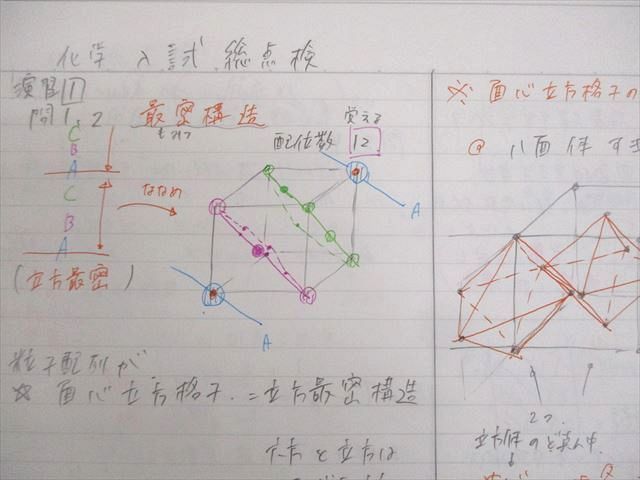 化学 入試 総点検
演習 1
問1, 2 最密構造
覚える
配位数 12
C
B
A
C
B
A
ななめ
A
A
(立方最密)
粒子配列が
☆ 面心立方格子 = 立方最密構造
六方と立方は
※ 面心立方格子の
@ 八面体 すき
2つ
立方体のど真ん中